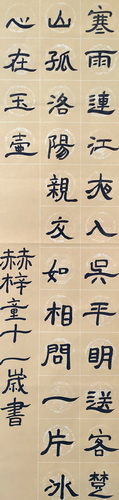 寒雨連江夾入吳平明送客楚
山孤洛陽親友如相問一片冰
心在玉壺
赫梓童十一歲書